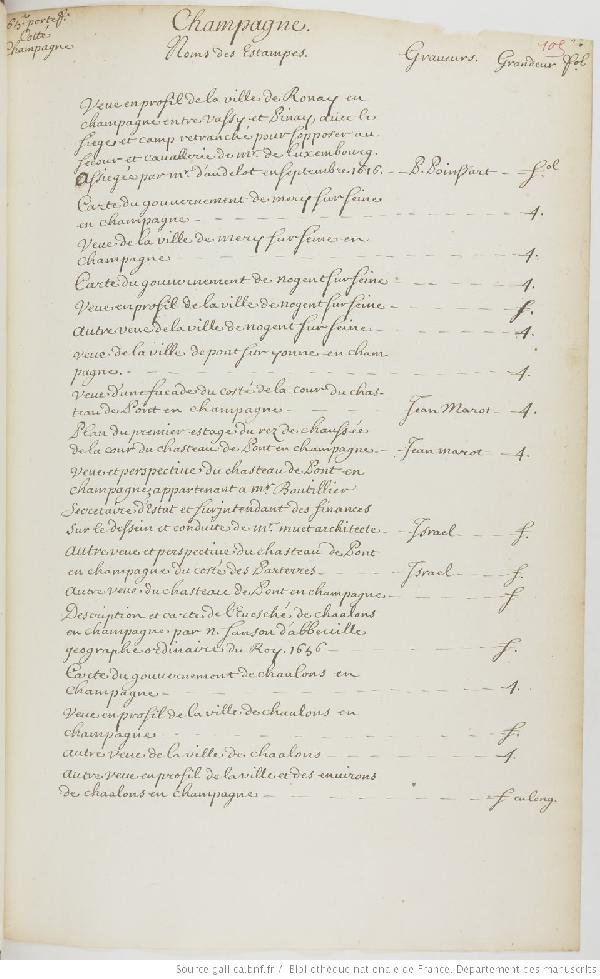 65e. portef.
Cotté
Champagne
Champagne.
105
Noms des Estampes. Graveurs. Grandeur fol
Veue en profil de la ville de Ronay en
champagne entre Vassy et Pinay, avec le
siege et camp retranché pour s'opposer au
secour et cavallerie de mr. de Luxembourg.
Assiegée par mr. d'andelot en septembre 1616. - P. Poinssart - fol
Carte du gouvernement de mery sur seine
en champagne - 4.
Veue de la ville de mery sur seine en
champagne - 4.
Carte du gouvernement de nogent sur seine - 4.
Veue en profil de la ville de nogent sur seine - f.
Autre veue de la ville de nogent sur seine - 4.
veue de la ville de pont sur yonne en cham
pagne. - 4.
Veue d'une facade du costé de la cour du chas-
teau de Pont en champagne - Jean Marot - 4.
Plan du premier estage du rez de chaussée
de la cour du chasteau de Pont en champagne - Jean marot - 4.
Veue et perspective du chasteau de Pont en
champagne, appartenant a mr. Boutillier
Secretaire d'Estat et surjntendant des finances
sur le dessein et conduite de mr. muet architecte - Israel - f.
Autre veue et perspective du chasteau de Pont
en champagne du costé des Parterres - Israel - f.
Autre veue du chasteau de Pont en champagne - f
Description et carte de l'Evesché de chaalons
en champagne par n. sanson d'abbeville
geographe ordinaire du Roy. 1656 - f.
Carte du gouvernement de chaalons en
champagne - 4.
Veue en profil de la ville de chaalons en
champagne - f.
autre veue de la ville de chaalons - 4.
Autre veue en profil de la ville et des environs
de chaalons en champagne - f en long.
Source gallica.bnf.fr / Bibliothèque nationale de France. Département des manuscrits